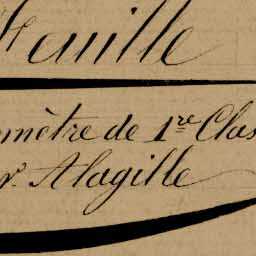 Feuille
omètre de 1re Clas
r. Alagille